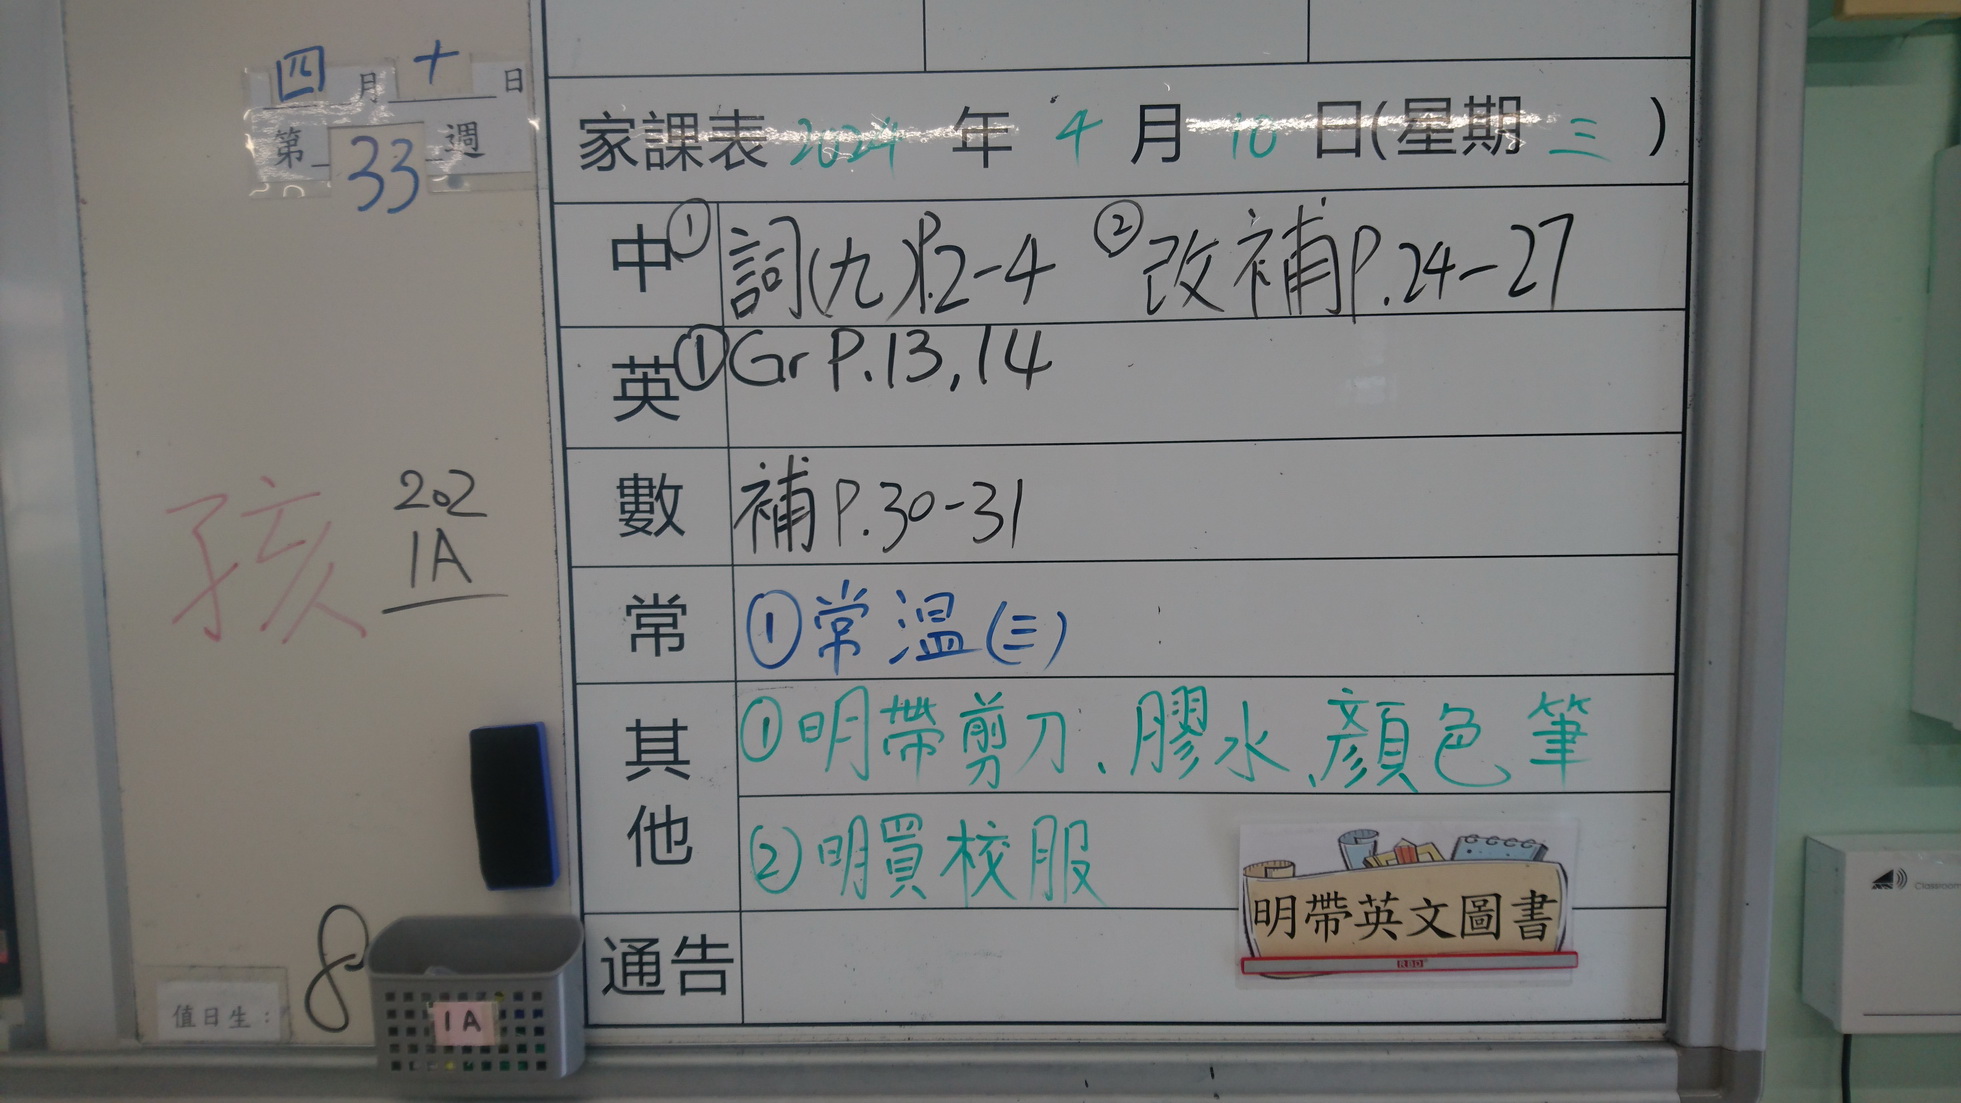 四月十日
第33週
家課表 2024 年 4 月 10 日(星期 三 )
中 ① 詞(九)P.2-4 ② 改補P.24-27
英 ① Gr P.13,14
數 補 P.30-31
常 ① 常溫(三)
其他 ① 明帶剪刀、膠水、顏色筆
② 明買校服
明帶英文圖書
RBD
通告
孩
202
1A
8
值日生:
1A
Classroom